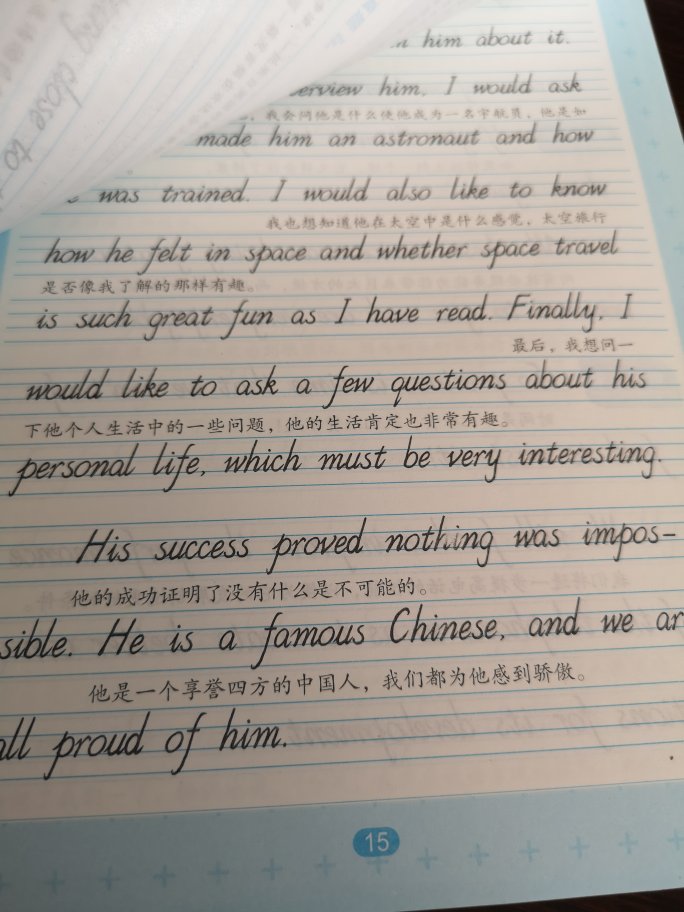 him about it.
erview him. I would ask
我会问他是什么使他成为一名宇航员，他是如
made him an astronaut and how
was trained. I would also like to know
我也想知道他在太空中是什么感觉，太空旅行
how he felt in space and whether space travel
是否像我了解的那样有趣。
is such great fun as I have read. Finally, I
最后，我想问一
would like to ask a few questions about his
下他个人生活中的一些问题，他的生活肯定也非常有趣。
personal life, which must be very interesting.
His success proved nothing was impos-
他的成功证明了没有什么是不可能的。
sible. He is a famous Chinese, and we ar
他是一个享誉四方的中国人，我们都为他感到骄傲。
all proud of him.
15
close to